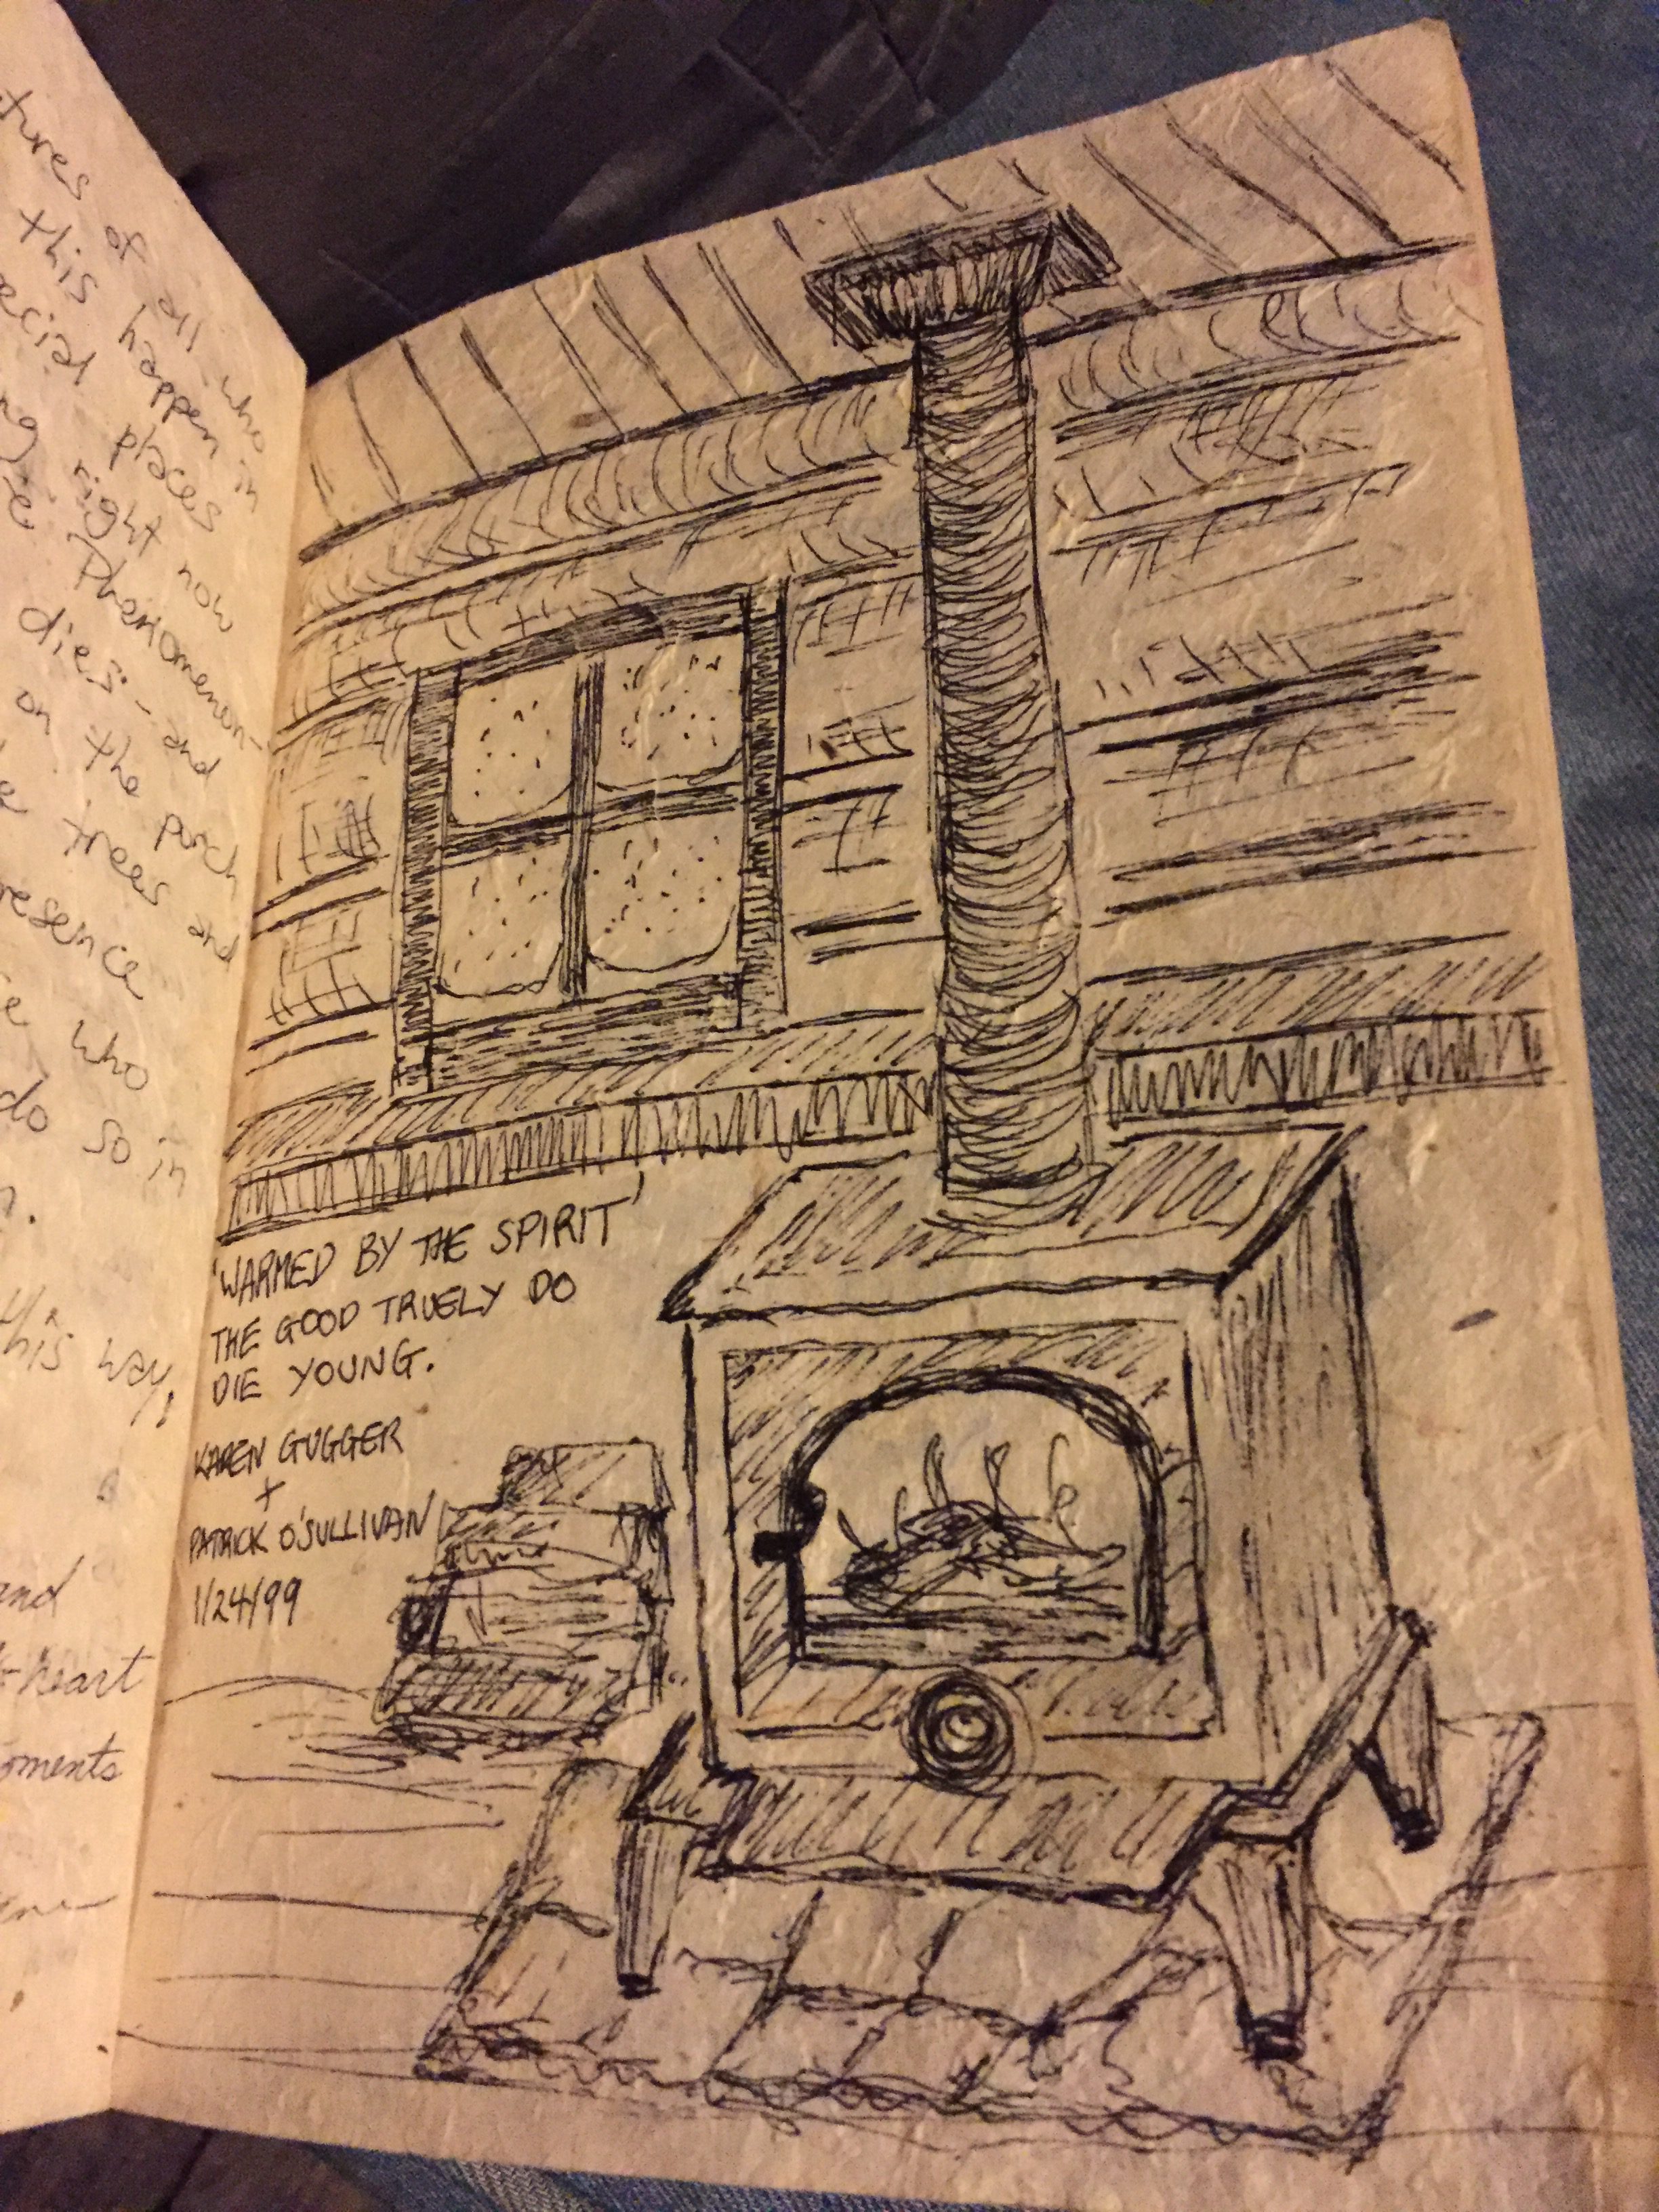 tures of all who
this happen in
places
right now
Phenomenon-
dies - and
on the porch
trees and
resence
who
do so in
this way,
and
heart
oments
'WARMED BY THE SPIRIT'
THE GOOD TRUELY DO
DIE YOUNG.
KAREN GUGGER
+
PATRICK O'SULLIVAN
1/24/99